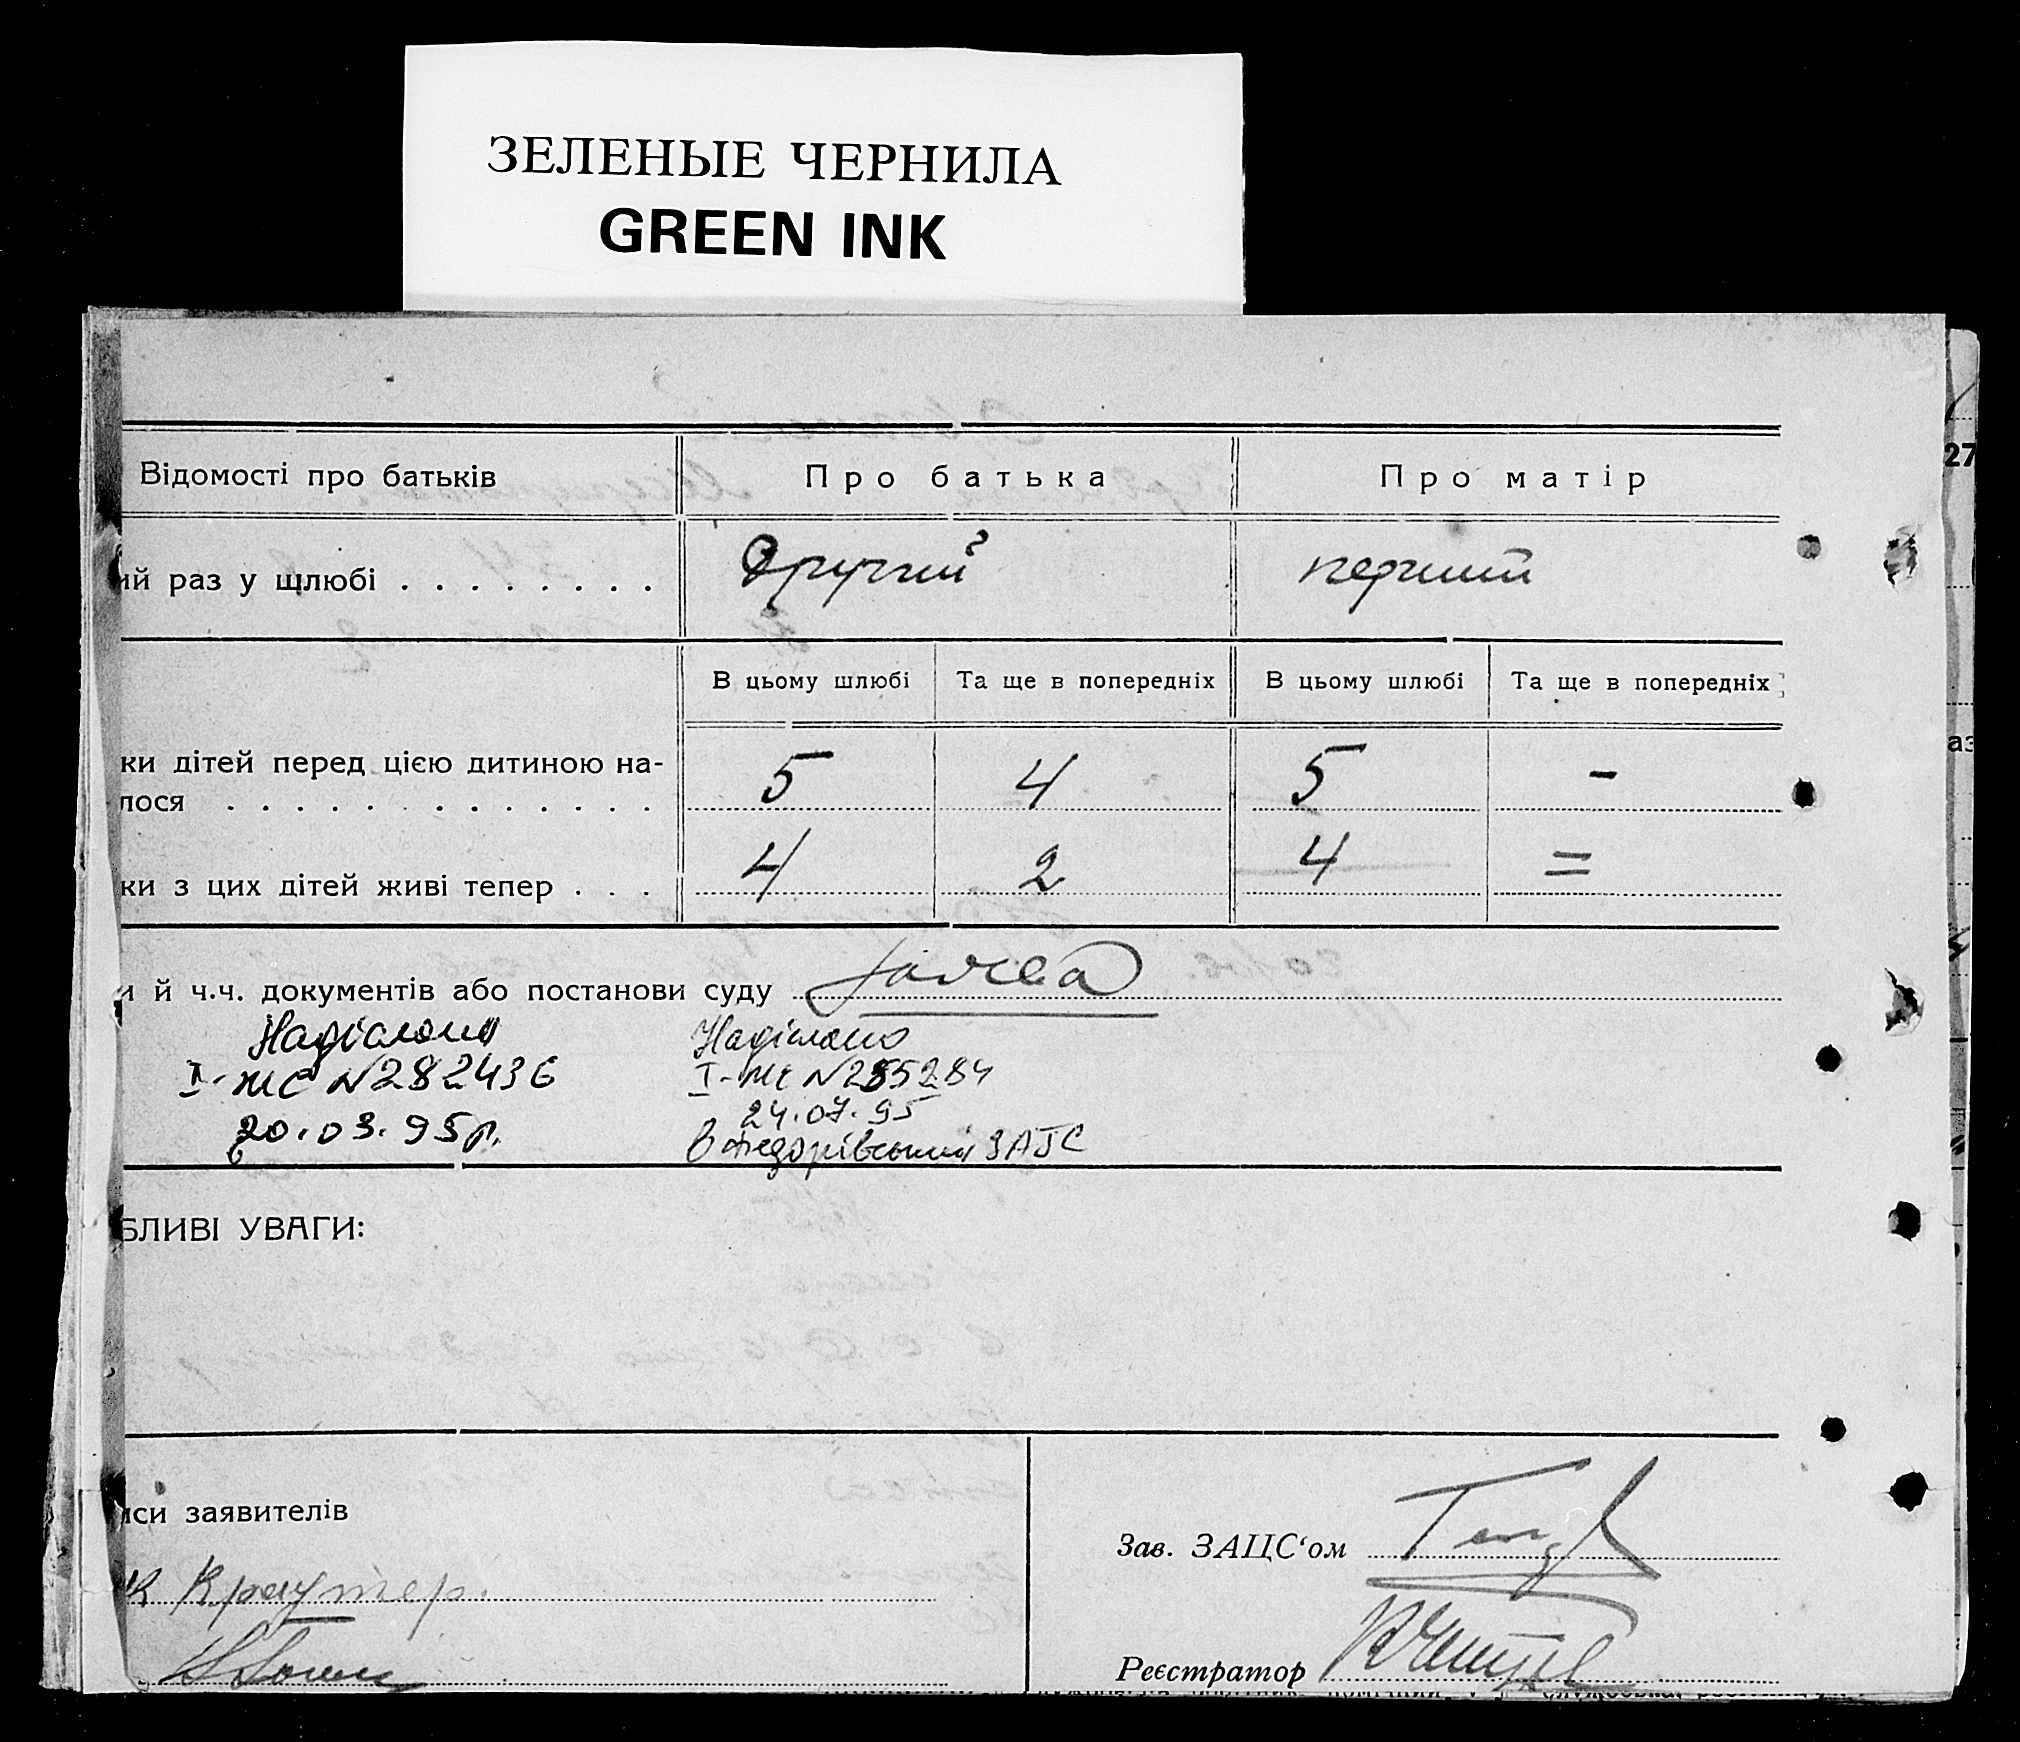 ЗЕЛЕНЫЕ ЧЕРНИЛА
GREEN INK
Відомості про батьків
Про батька
Про матір
ий раз у шлюбі . . . . . . . .
другий
перший
В цьому шлюбі
Та ще в попередніх
В цьому шлюбі
Та ще в попередніх
ки дітей перед цією дитиною на-
лося . . . . . . . . . . . . .
5
4
5
-
ки з цих дітей живі тепер . . .
4
2
4
=
и й ч.ч. документів або постанови суду
Надіслано
І-ЖС N282436
20.03.95р.
Надіслано
І-ЖС N285284
24.07.95
ЗАГС
БЛИВІ УВАГИ:
иси заявителів
Краутер.
Зав. ЗАЦС‘ом
Реєстратор
27